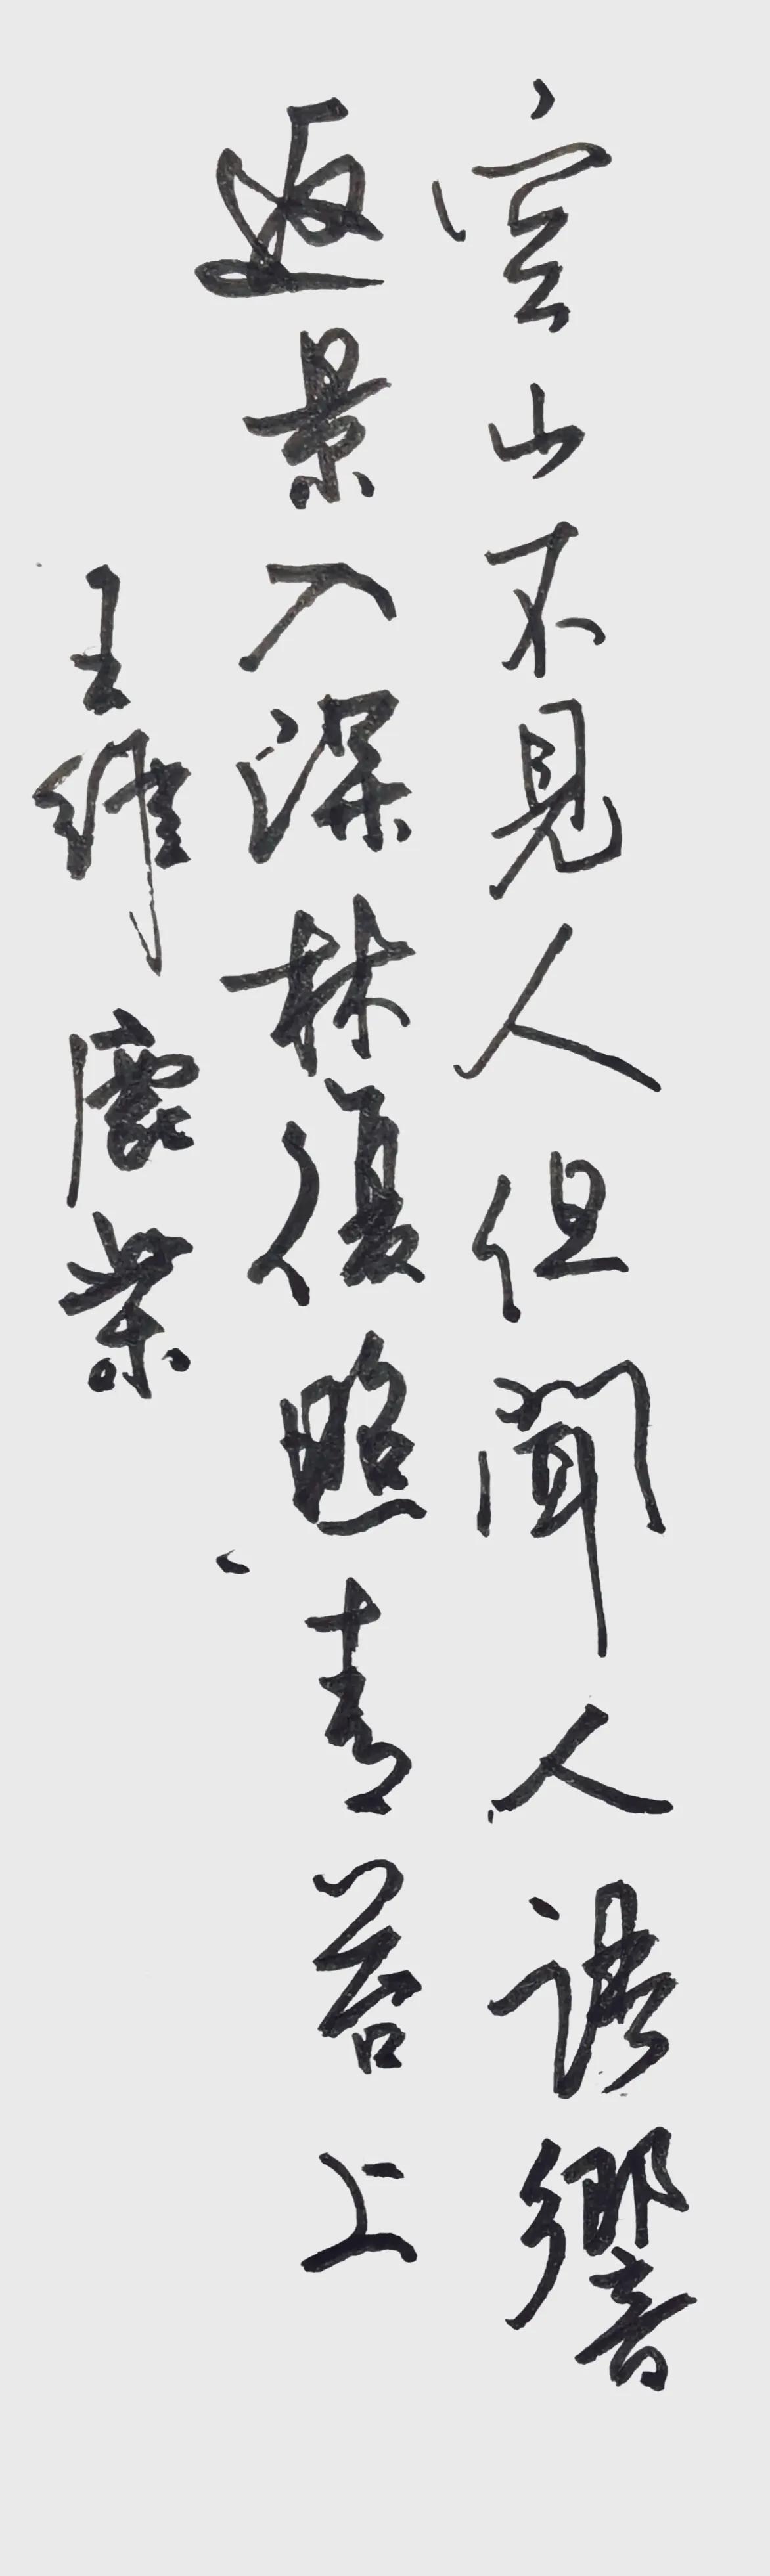 空山不見人但聞人語響
返景入深林復照青苔上
王維鹿柴